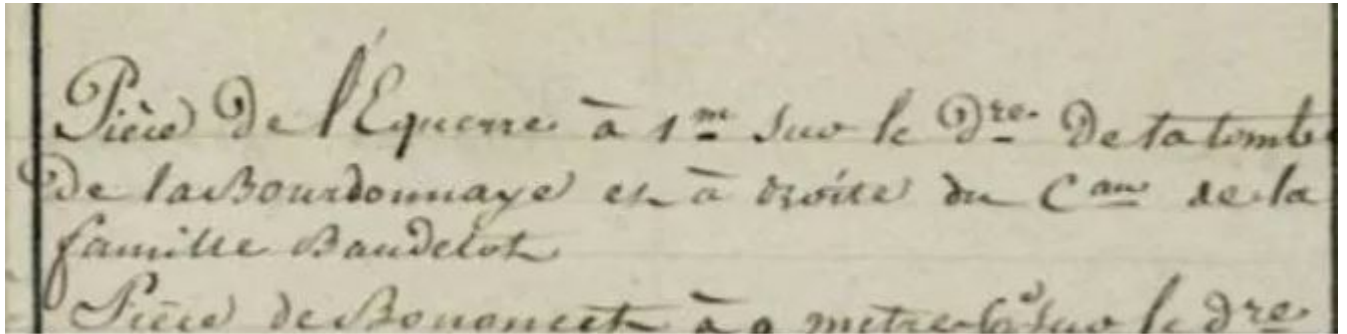 Pièce de l'Equerre à 1m sur le Dre. De la tombe
De la Bourdonnaye et à droite du Cau de la
famille Baudelot
Pièce de à 9 metres sur le Dre